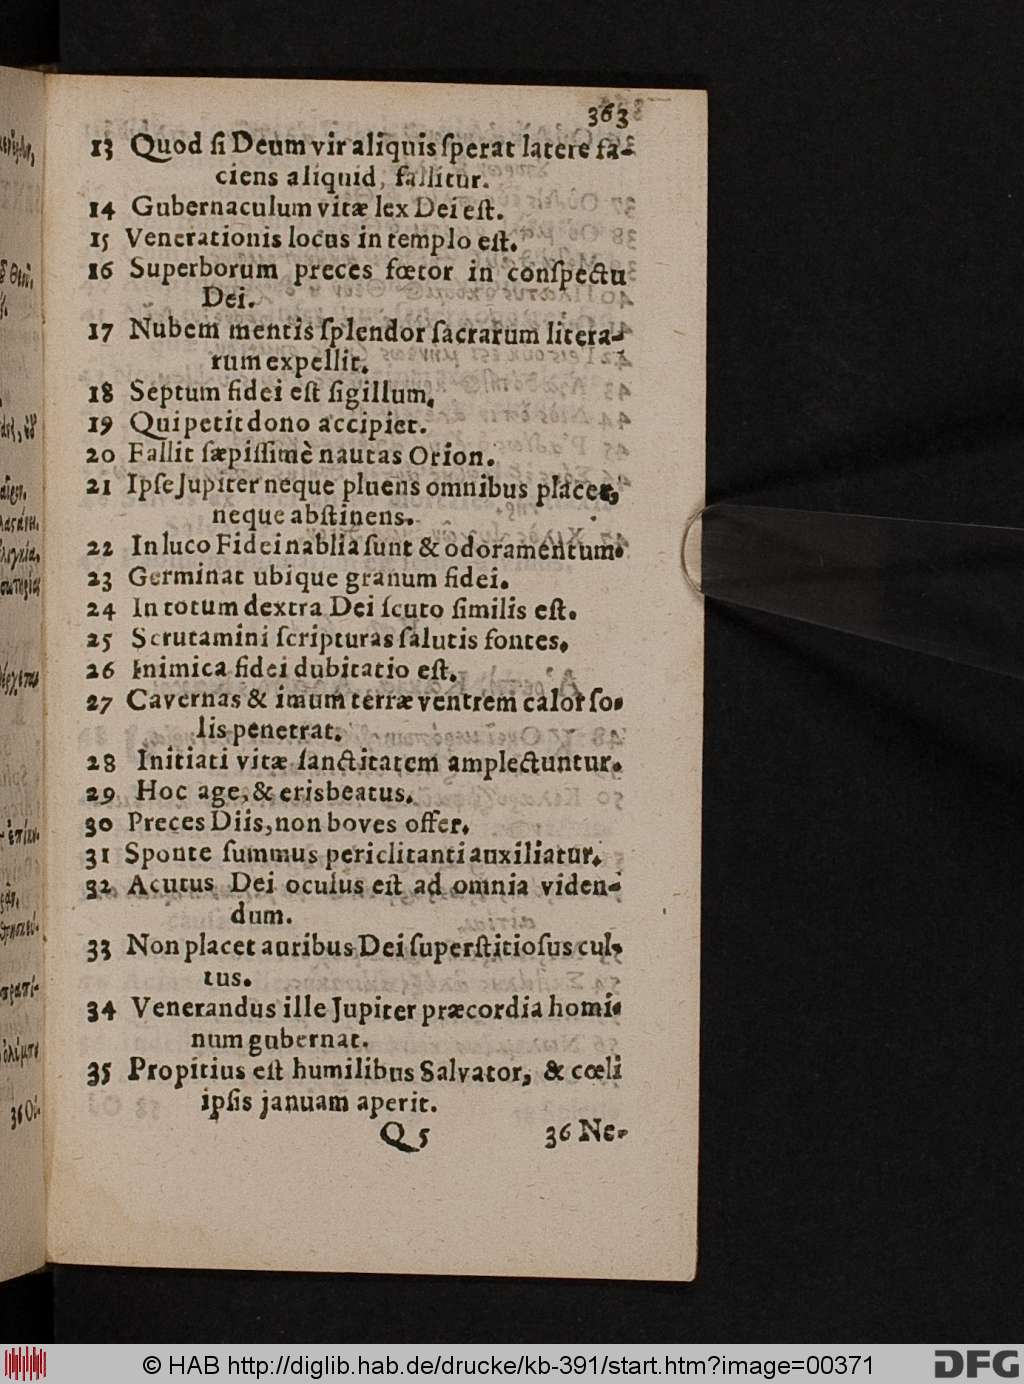 363
13 Quod ſi Deum vir aliquis ſperat latere fa-
ciens aliquid, fallitur.
14 Gubernaculum vitæ lex Dei eſt.
15 Venerationis locus in templo eſt.
16 Superborum preces fœtor in conſpectu
Dei.
17 Nubem mentis ſplendor ſacrarum litera-
rum expellit.
18 Septum fidei eſt ſigillum.
19 Qui petit dono accipiet.
20 Fallit ſæpiſſimè nautas Orion.
21 Ipſe Jupiter neque pluens omnibus placet,
neque abſtinens.
22 In luco Fidei nablia ſunt & odoramentum.
23 Germinat ubique granum fidei.
24 In totum dextra Dei ſcuto ſimilis eſt.
25 Scrutamini ſcripturas ſalutis fontes.
26 Inimica fidei dubitatio eſt.
27 Cavernas & imum terræ ventrem calor ſo-
lis penetrat.
28 Initiati vitæ ſanctitatem amplectuntur.
29 Hoc age, & eris beatus.
30 Preces Diis, non boves offer.
31 Sponte ſummus periclitanti auxiliatur.
32 Acutus Dei oculus eſt ad omnia viden-
dum.
33 Non placet auribus Dei ſuperſtitioſus cul-
tus.
34 Venerandus ille Jupiter præcordia homi-
num gubernat.
35 Propitius eſt humilibus Salvator, & cœli
ipſis januam aperit.
Q 5 36 Ne-
© HAB http://diglib.hab.de/drucke/kb-391/start.htm?image=00371
DFG